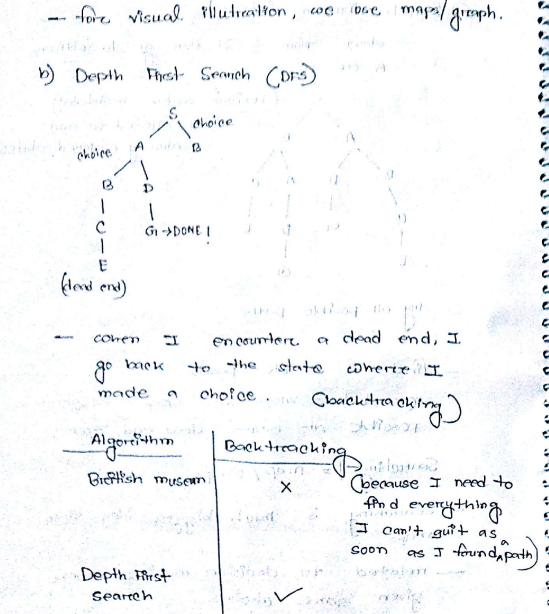 — for visual illustration, we use maps/graph.
b) Depth First Search (DFS)
S
choice
choice A B
B D
C G→DONE!
E
(dead end)
— when I encounter a dead end, I
go back to the state where I
made a choice. (backtracking)
Algorithm Backtracking
British museum x (because I need to
find everything
I can't quit as
soon as I found a path)
Depth First
Search ✓